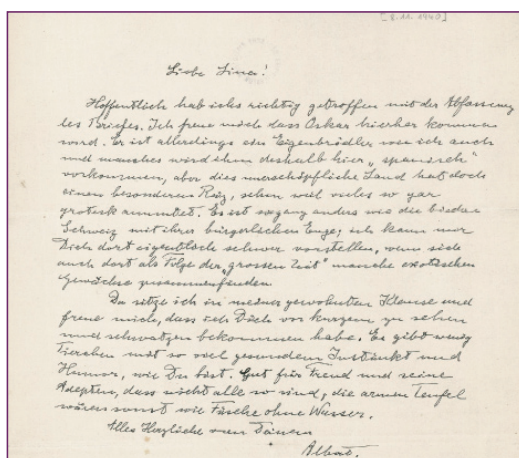 [8.11.1940]
Liebe Lina!
Hoffentlich hab ichs richtig getroffen mit der Abfassung
des Briefes. Ich freue mich dass Oskar hierher kommen
wird. Er ist allerdings ein Eigenbrödler wie ich auch
und manches wird ihm deshalb hier „spanisch"
vorkommen, aber dies unerschöpfliche Land hat doch
einen besonderen Reiz, schon weil vieles so gar
grotesk anmutet. Es ist so ganz anders wie die biedere
Schweiz mit ihrer bürgerlichen Enge; ich kann mir
Dich dort eigentlich schwer vorstellen, wenn sich
auch dort als Folge der „grossen Zeit" manche exotischen
Gewächse zusammenfinden.
Da sitze ich in meiner gewohnten Klause und
freue mich, dass ich Dich vor kurzem zu sehen
und schwatzen bekommen habe. Es gibt wenig
Tierchen mit so viel gesundem Instinkt und
Humor, wie Du bist. Gut für Freud und seine
Adepten, dass nicht alle so sind; die armen Teufel
wären sonst wie Fische ohne Wasser.
Alles Herzliche von Deinem
Albert.